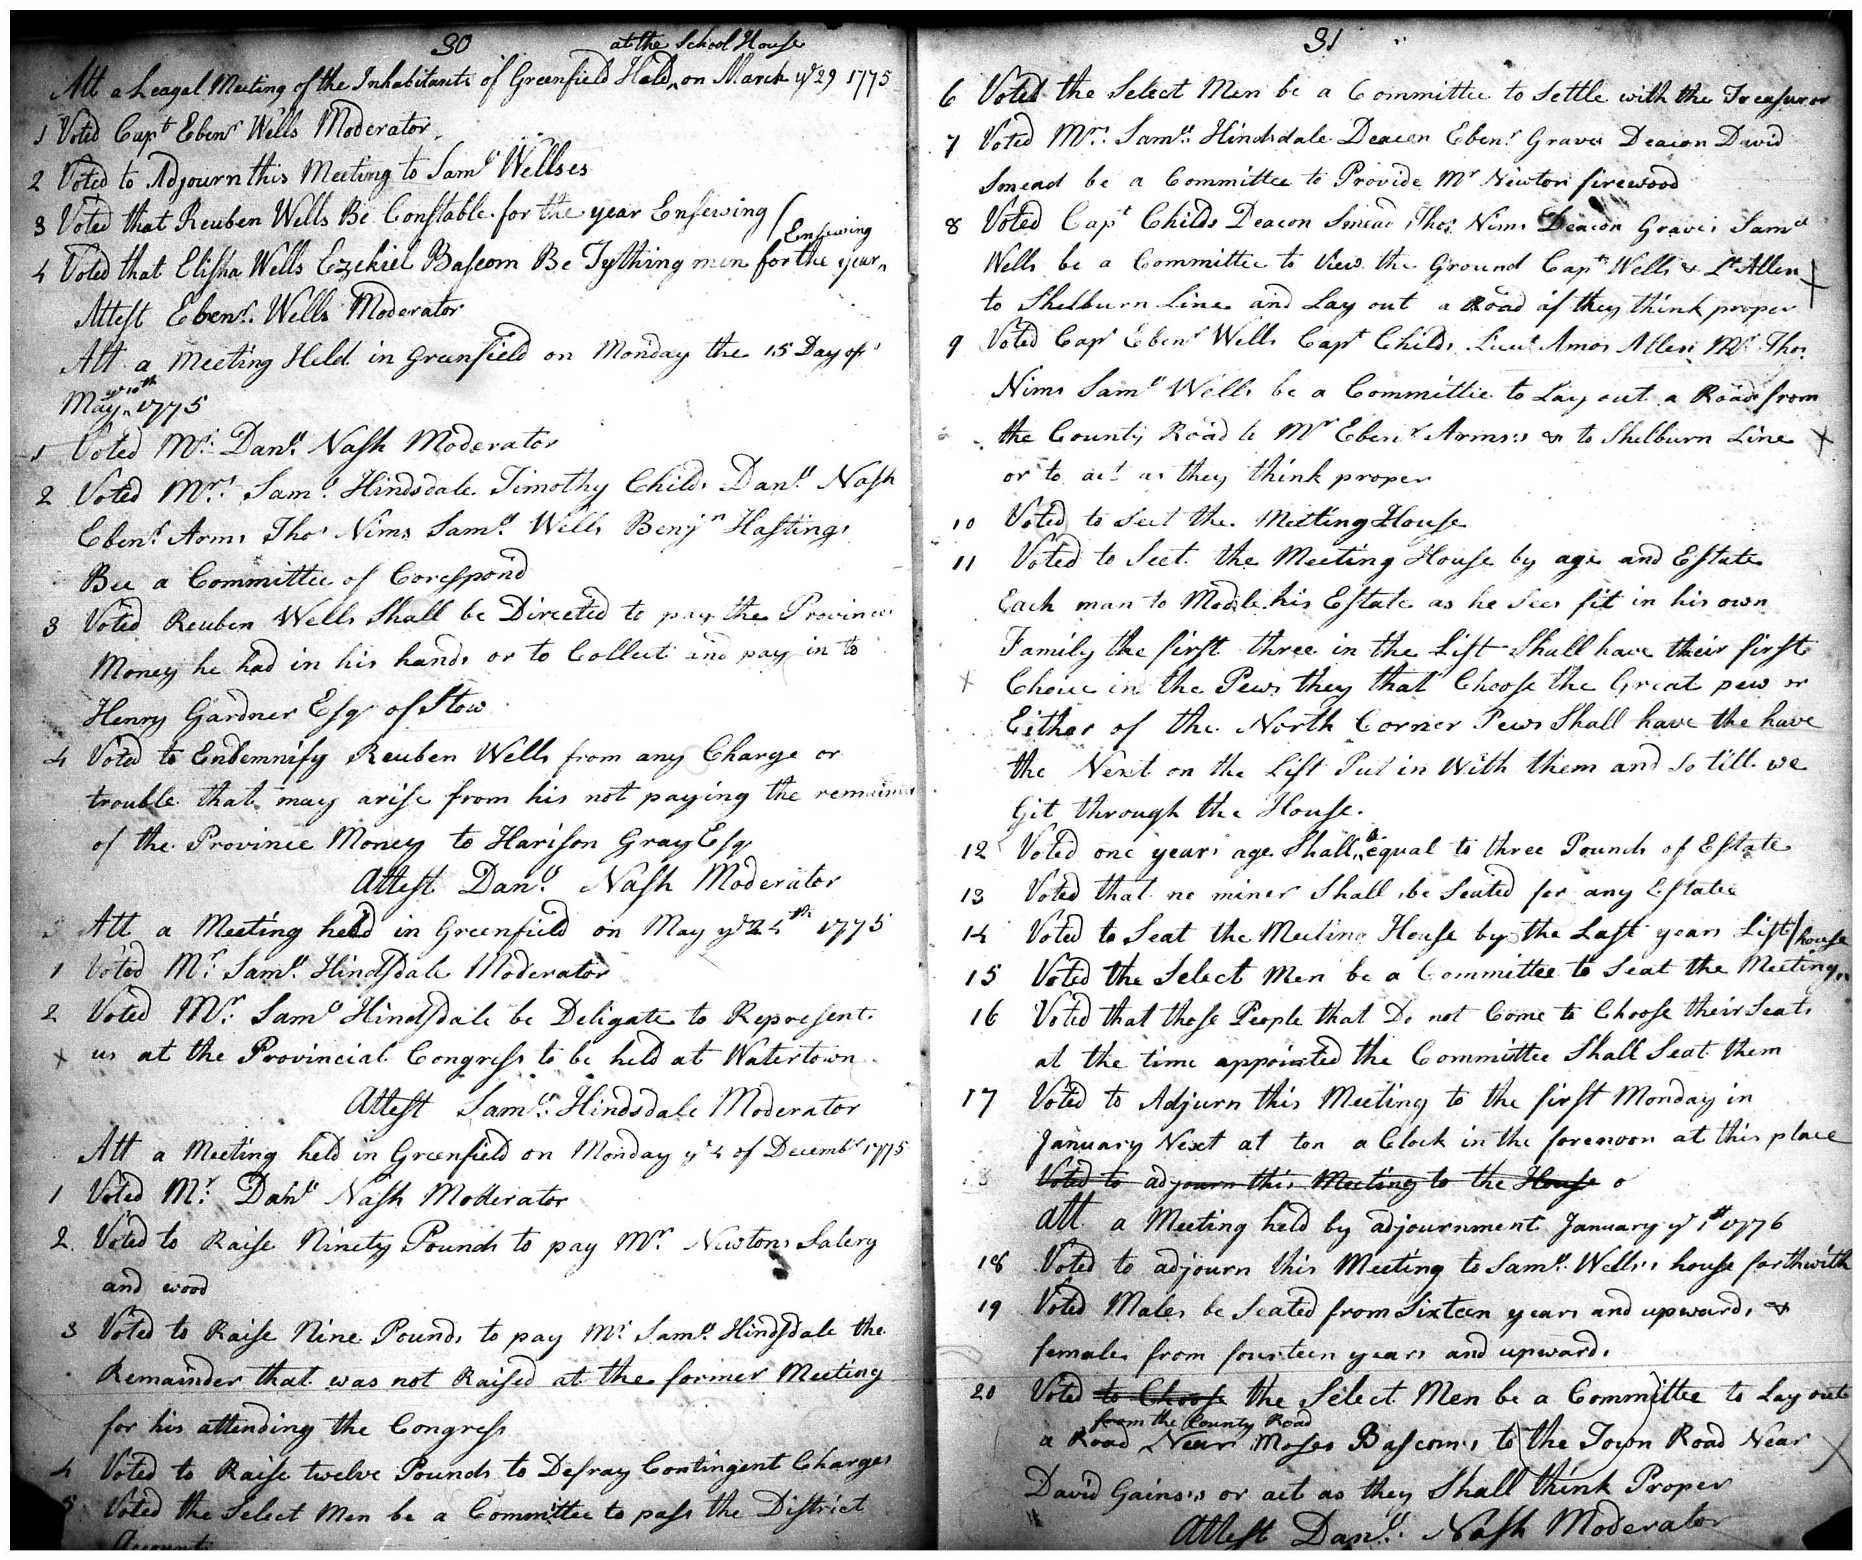 30
at the School House
Att a Leagal Meeting of the Inhabitants of Greenfield Held ^ on March ye 29 1775
1 Voted Capt Ebenr Wells Moderator
2 Voted to Adjourn this Meeting to Saml Wellses
3 Voted that Reuben Wells Be Constable for the year Ensewing
Ensewing
4 Voted that Elisha Wells Ezekiel Bascom Be Tything men for the year ^
Attest Ebenr. Wells Moderator
Att a Meeting Held in Greenfield on Monday the 15 Day of
May ^ 1775
1 Voted Mr. Danll Nash Moderator
2 Voted Mrs. Saml. Hindsdale Timothy Childs Danll Nash
Ebenr Arms Thos Nims Samll Wells Benjn Hastings
Bee a Committee of Corespond
3 Voted Reuben Wells Shall be Directed to pay the Province
Money he had in his hands or to Collect and pay in to
Henry Gardner Esqr of Stow
4 Voted to Endemnify Reuben Wells from any Charge or
trouble that may arise from his not paying the remainder
of the Province Money to Harison Gray Esqr
Attest Danll Nash Moderator
Att a Meeting held in Greenfield on May ye 24th 1775
1 Voted Mr. Samll. Hindsdale Moderator
2 Voted Mr. Samll Hindsdale be Deligate to Represent
us at the Provincial Congress to be held at Watertown
Attest Samll. Hindsdale Moderator
Att a Meeting held in Greenfield on Monday ye 4 of Decembr 1775
1 Voted Mr. Danll Nash Moderator
2. Voted to Raise Ninety Pounds to pay Mr. Newtons Salery
and wood
3 Voted to Raise Nine Pounds to pay Mr Samll Hindsdale the
Remainder that was not Raised at the former Meeting
for his attending the Congress
4 Voted to Raise twelve Pounds to Defray Contingent Charges
5 Voted the Select Men be a Committee to pass the District
Accounts
31
6 Voted the Select Men be a Committee to Settle with the Treasuror
7 Voted Mrs. Samll. Hindsdale Deacon Ebenr Graves Deacon David
Smead be a Committee to Provide Mr Newton firewood
8 Voted Capt Childs Deacon Smead Thos Nims Deacon Graves Samll
Wells be a Committee to View the Ground Capt Wells & Lt Allen
to Shelburn Line and Lay out a Road if they think proper
9 Voted Capt Ebenr Wells Capt Childs Lieut Amos Allen Mr. Thos.
Nims Samll Wells be a Committee to Lay out a Road from
the County Road to Mr Ebenr Arms's & to Shelburn Line
or to act as they think proper
10 Voted to Seet the Meeting House
11 Voted to Seet the Meeting House by age and Estate
Each man to Modle his Estate as he Sees fit in his own
Family the first three in the List Shall have their first
Choice in the Pews they that Choose the Great pew or
Either of the North Corner Pews Shall have the have
the Next on the List Put in With them and so till we
Git through the House.
12 Voted one years age Shall ^ equal to three Pounds of Estate
13 Voted that no miner Shall be Seated for any Estate
14 Voted to Seat the Meeting House by the Last years List
house
15 Voted the Select Men be a Committee to Seat the Meeting ^
16 Voted that those People that Do not Come to Choose their Seats
at the time appointed the Committee Shall Seat them
17 Voted to Adjurn this Meeting to the first Monday in
January Next at ten a Clock in the forenoon at this place
Voted to adjourn this Meeting to the House
Att a Meeting held by adjournment January ye 1st 1776
18 Voted to adjourn this Meeting to Samll. Wells's house forthwith
19 Voted Males be Seated from Sixteen years and upwards &
females from fourteen years and upwards
20 Voted to Choose the Select Men be a Committee to Lay out
from the County Road
a Road Near Moses Bascoms to the Town Road Near
David Gains's or act as they Shall think Proper
Attest Danll. Nash Moderator